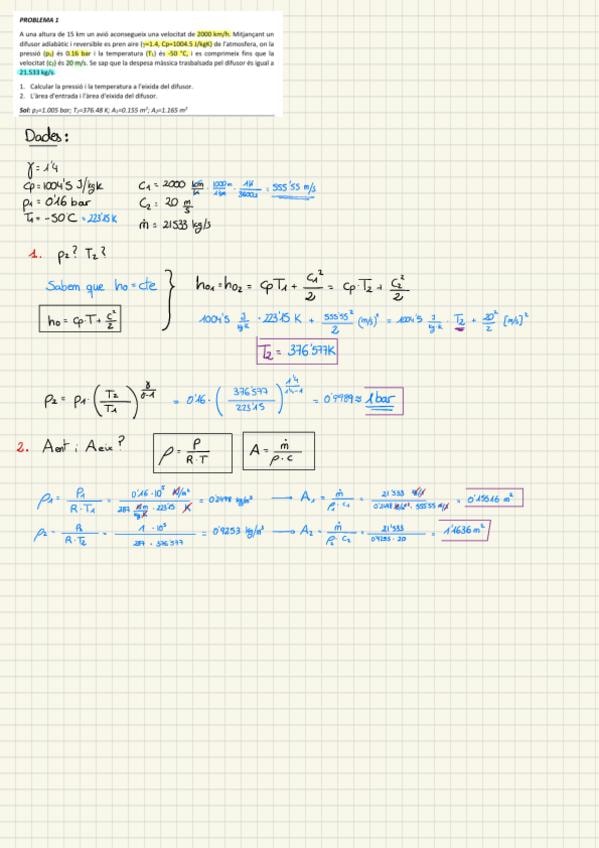 PROBLEMA 1
A una altura de 15 km un avió aconsegueix una velocitat de 2000 km/h. Mitjançant un
difusor adiabàtic i reversible es pren aire (γ=1.4, Cp=1004.5 J/kgK) de l'atmosfera, on la
pressió (p₁) és 0.16 bar i la temperatura (T₁) és -50 °C, i es comprimeix fins que la
velocitat (c₂) és 20 m/s. Se sap que la despesa màssica trasbalsada pel difusor és igual a
21.533 kg/s.
1. Calcular la pressió i la temperatura a l'eixida del difusor.
2. L'àrea d'entrada i l'àrea d'eixida del difusor.
Sol: p₂=1.005 bar; T₂=376.48 K; A₁=0.155 m²; A₂=1.165 m²
Dades:
γ = 1'4
Cp = 1004'5 J/kgK
C₁ = 2000 km/h · 1000m/1km · 1h/3600s = 555'55 m/s
P₁ = 0'16 bar
C₂ = 20 m/s
T₁ = -50°C = 223'15 K
ṁ = 21'533 kg/s
1. P₂? T₂?
Sabem que h₀ = cte
h₀₁ = h₀₂ = CpT₁ + C₁²/2 = Cp·T₂ + C₂²/2
h₀ = Cp·T + C²/2
1004'5 J/kg·K · 223'15 K + 555'55²/2 (m/s)² = 1004'5 J/kg·K · T₂ + 20²/2 [m/s]²
T₂ = 376'577K
P₂ = P₁ · (T₂/T₁)^(γ/γ-1) = 0'16 · (376'577/223'15)^(1'4/1'4-1) = 0'9989 ≈ 1 bar
2. Aent i Aeix?
ρ = P/R·T
A = ṁ/ρ·c
ρ₁ = P₁/R·T₁ = 0'16·10⁵ N/m² / 287 Nm/kg·K · 223'15 K = 0'2498 kg/m³ → A₁ = ṁ/ρ₁·C₁ = 21'533 kg/s / 0'2498 kg/m³ · 555'55 m/s = 0'15516 m²
ρ₂ = P₂/R·T₂ = 1·10⁵ / 287 · 376'577 = 0'9253 kg/m³ → A₂ = ṁ/ρ₂·C₂ = 21'533 / 0'9253 · 20 = 1'1636 m²